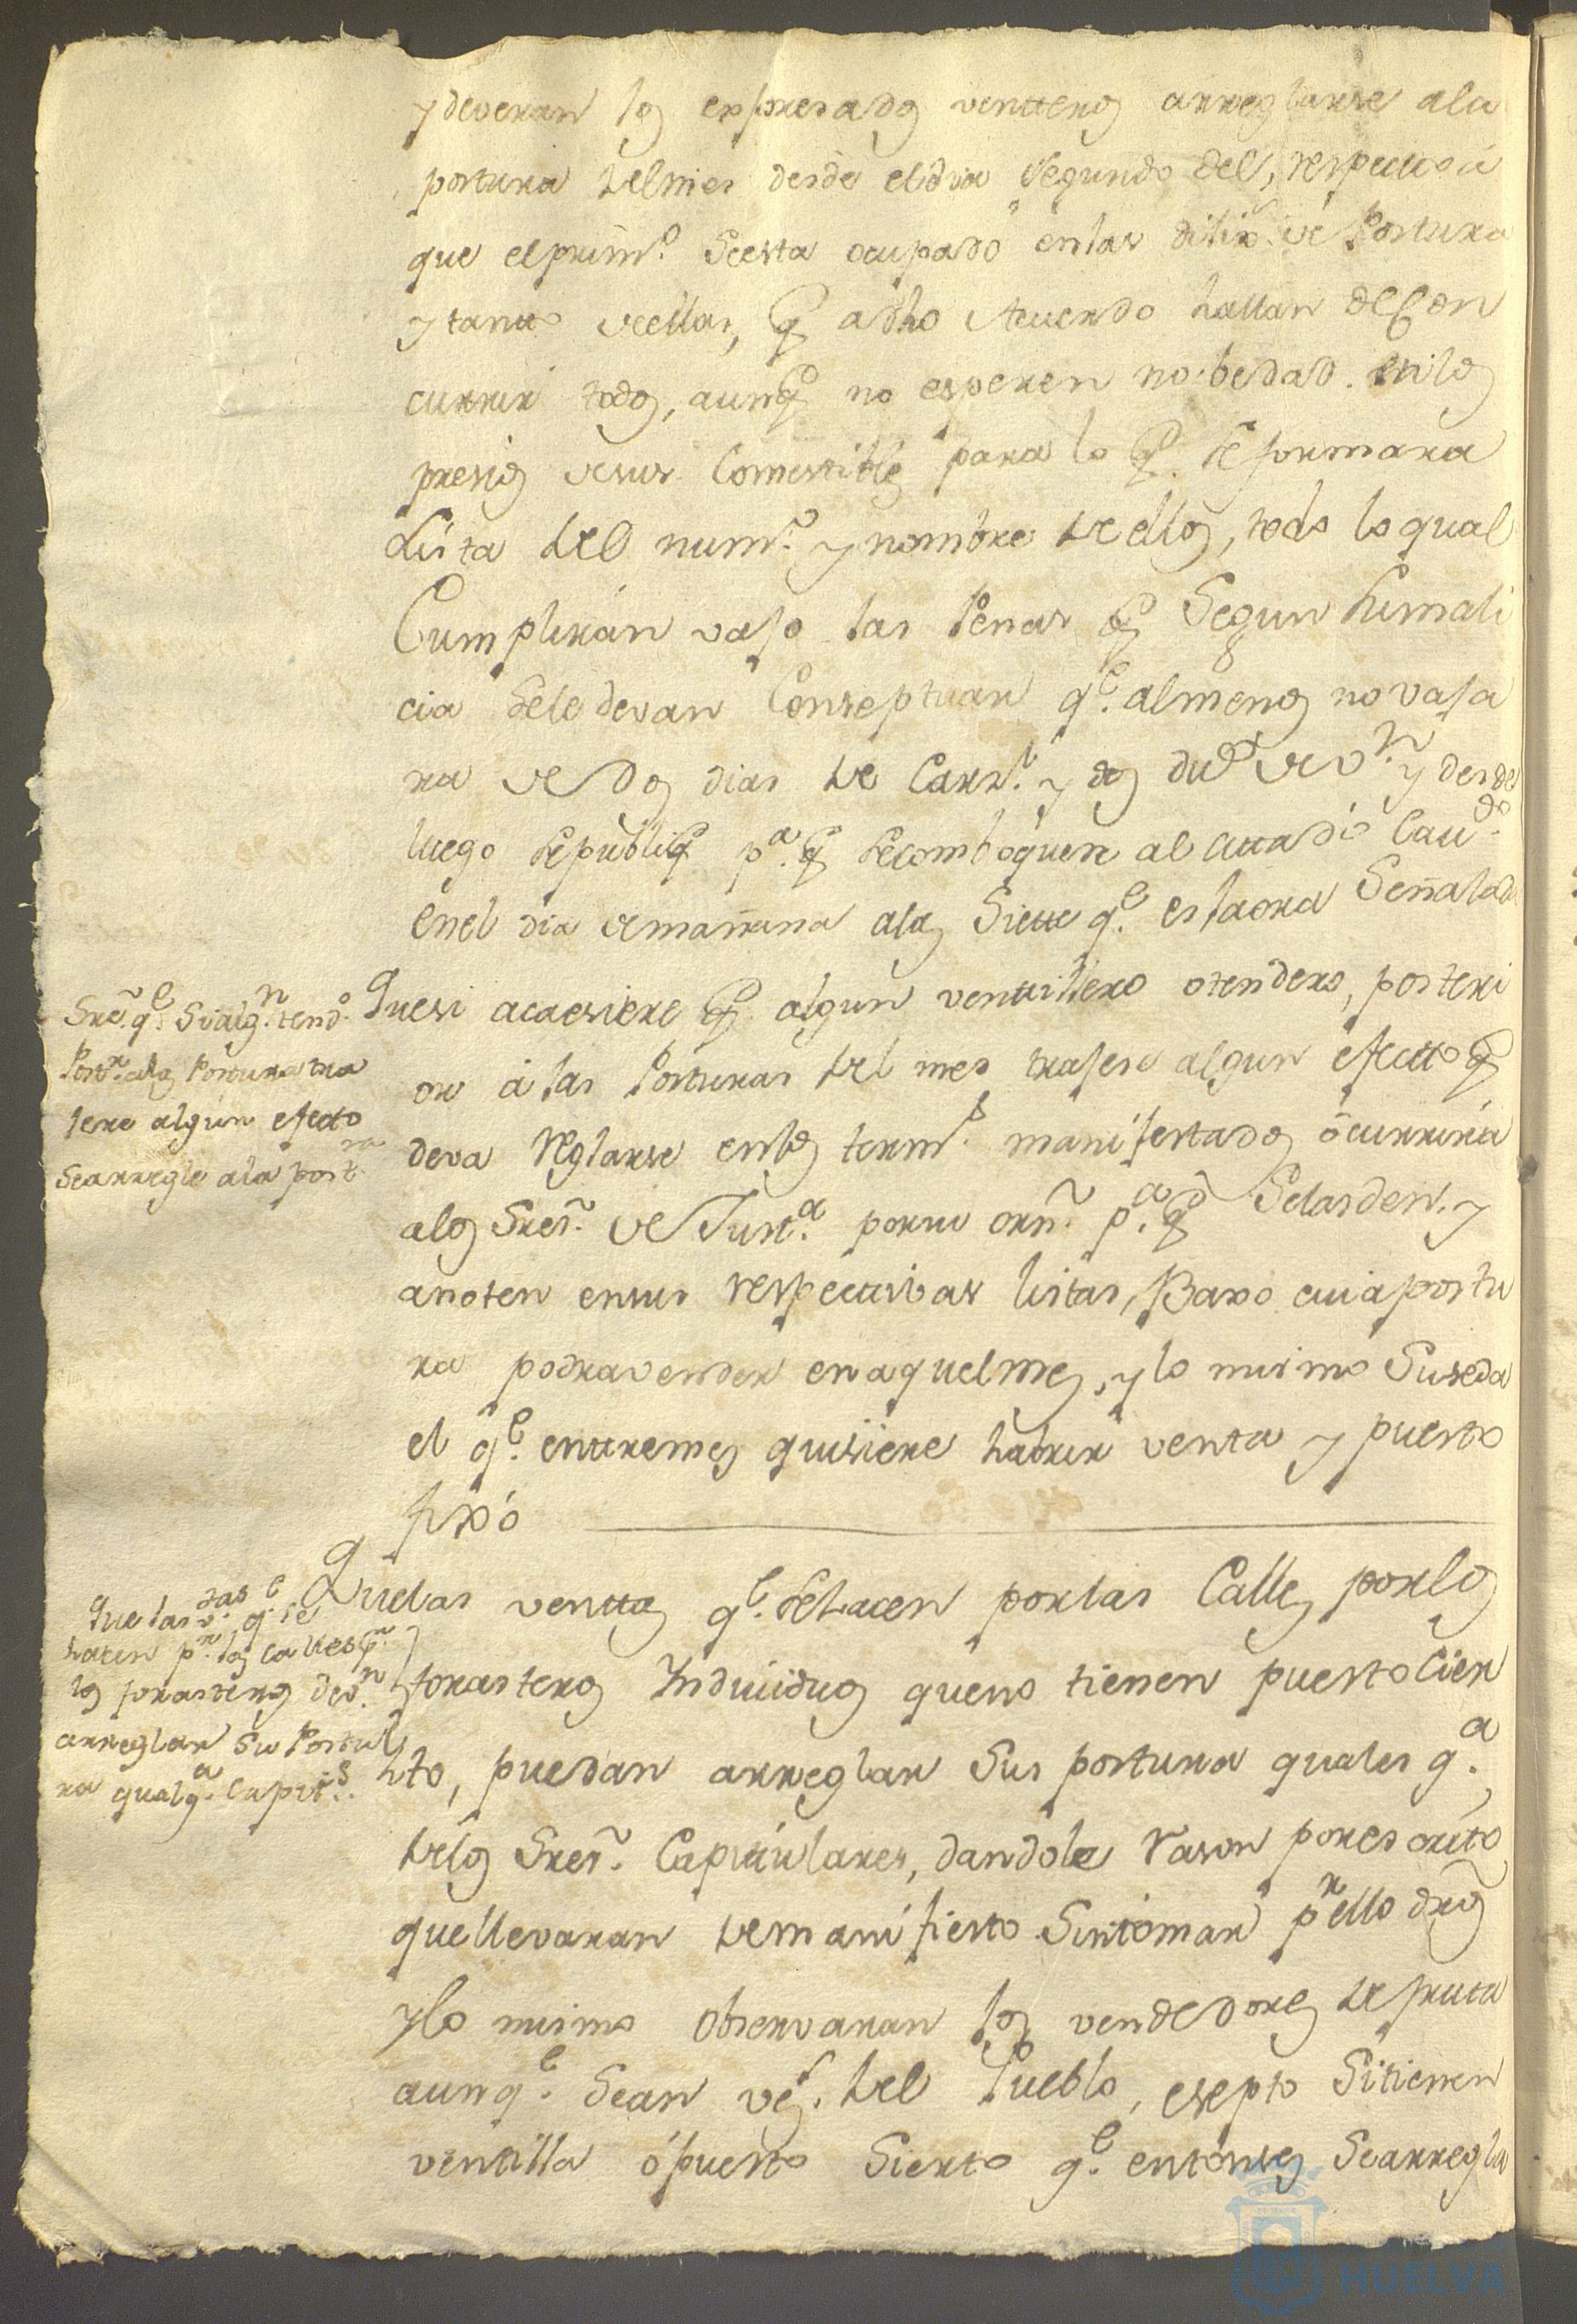 y deveran los expresados ventteros arreglarse ala
postura del mes desde el dia Segundo del, respecto a
que el prim.º Seesta ocupado en las dilix.s de Postura
y tanto de ellas, q.e a dho Acuerdo hallan de Con
currir todos, aunq.e no esperen nobedad en los
presios de sus Comestibles para lo q.e Se formara
Lista del num.º y nombre de ellos, todo lo qual
Cumpliràn vajo las Penas q.e Segun Su mali
cia Sele devan Conseptuar q.e al menos no vaja
ra de dos dias de Carz.l y dos du.s de v.n y desde
luego Se publiq.e p.a q.e Se comboquen al cittado Cau.do
en el dia de mañana alas Siette q.e es la ora Señalada
Sre q.e Si alg.n tend.º
Post.r alas Postura tra
jere algun efecto
Se arregle ala post.ra
Que si acaesiere q.e algun venttillero o tendero, posteri
or á las Posturas del mes trajese algun efectto q.e
deva reglarse en los term.s manifestados ocurrira
alos Sres. de Just.a por su orn. p.a q.e Se las den y
anoten en sus respecttibas listas, Baxo cuia postu
ra podra vender en aquel mes, y lo mismo Suseda
el q.e enttre mes quisiere habrir venta y puesto
fixó
Que las v.tas q.e se
hacen p.r las calles p.r
los forasteros dev.n
arreglar Su Postu
ra qualq.a Capit.s
Que las venttas q.e Se hacen por las Calles por los
forasteros Indiuiduos que no tienen puesto cier
to, puedan arreglar Sus postura quales q.a
de los Sres. Capitulares, dandole rason por escrito
que llevaran de manifiesto Sin tomar p.r ello dros
y lo mismo observaran los vendedores de fruta
aunq.e Sean vez.s del Pueblo, esepto Si tienen
ventilla ó puesto Sierto q.e entonses Se arregla
HUELVA